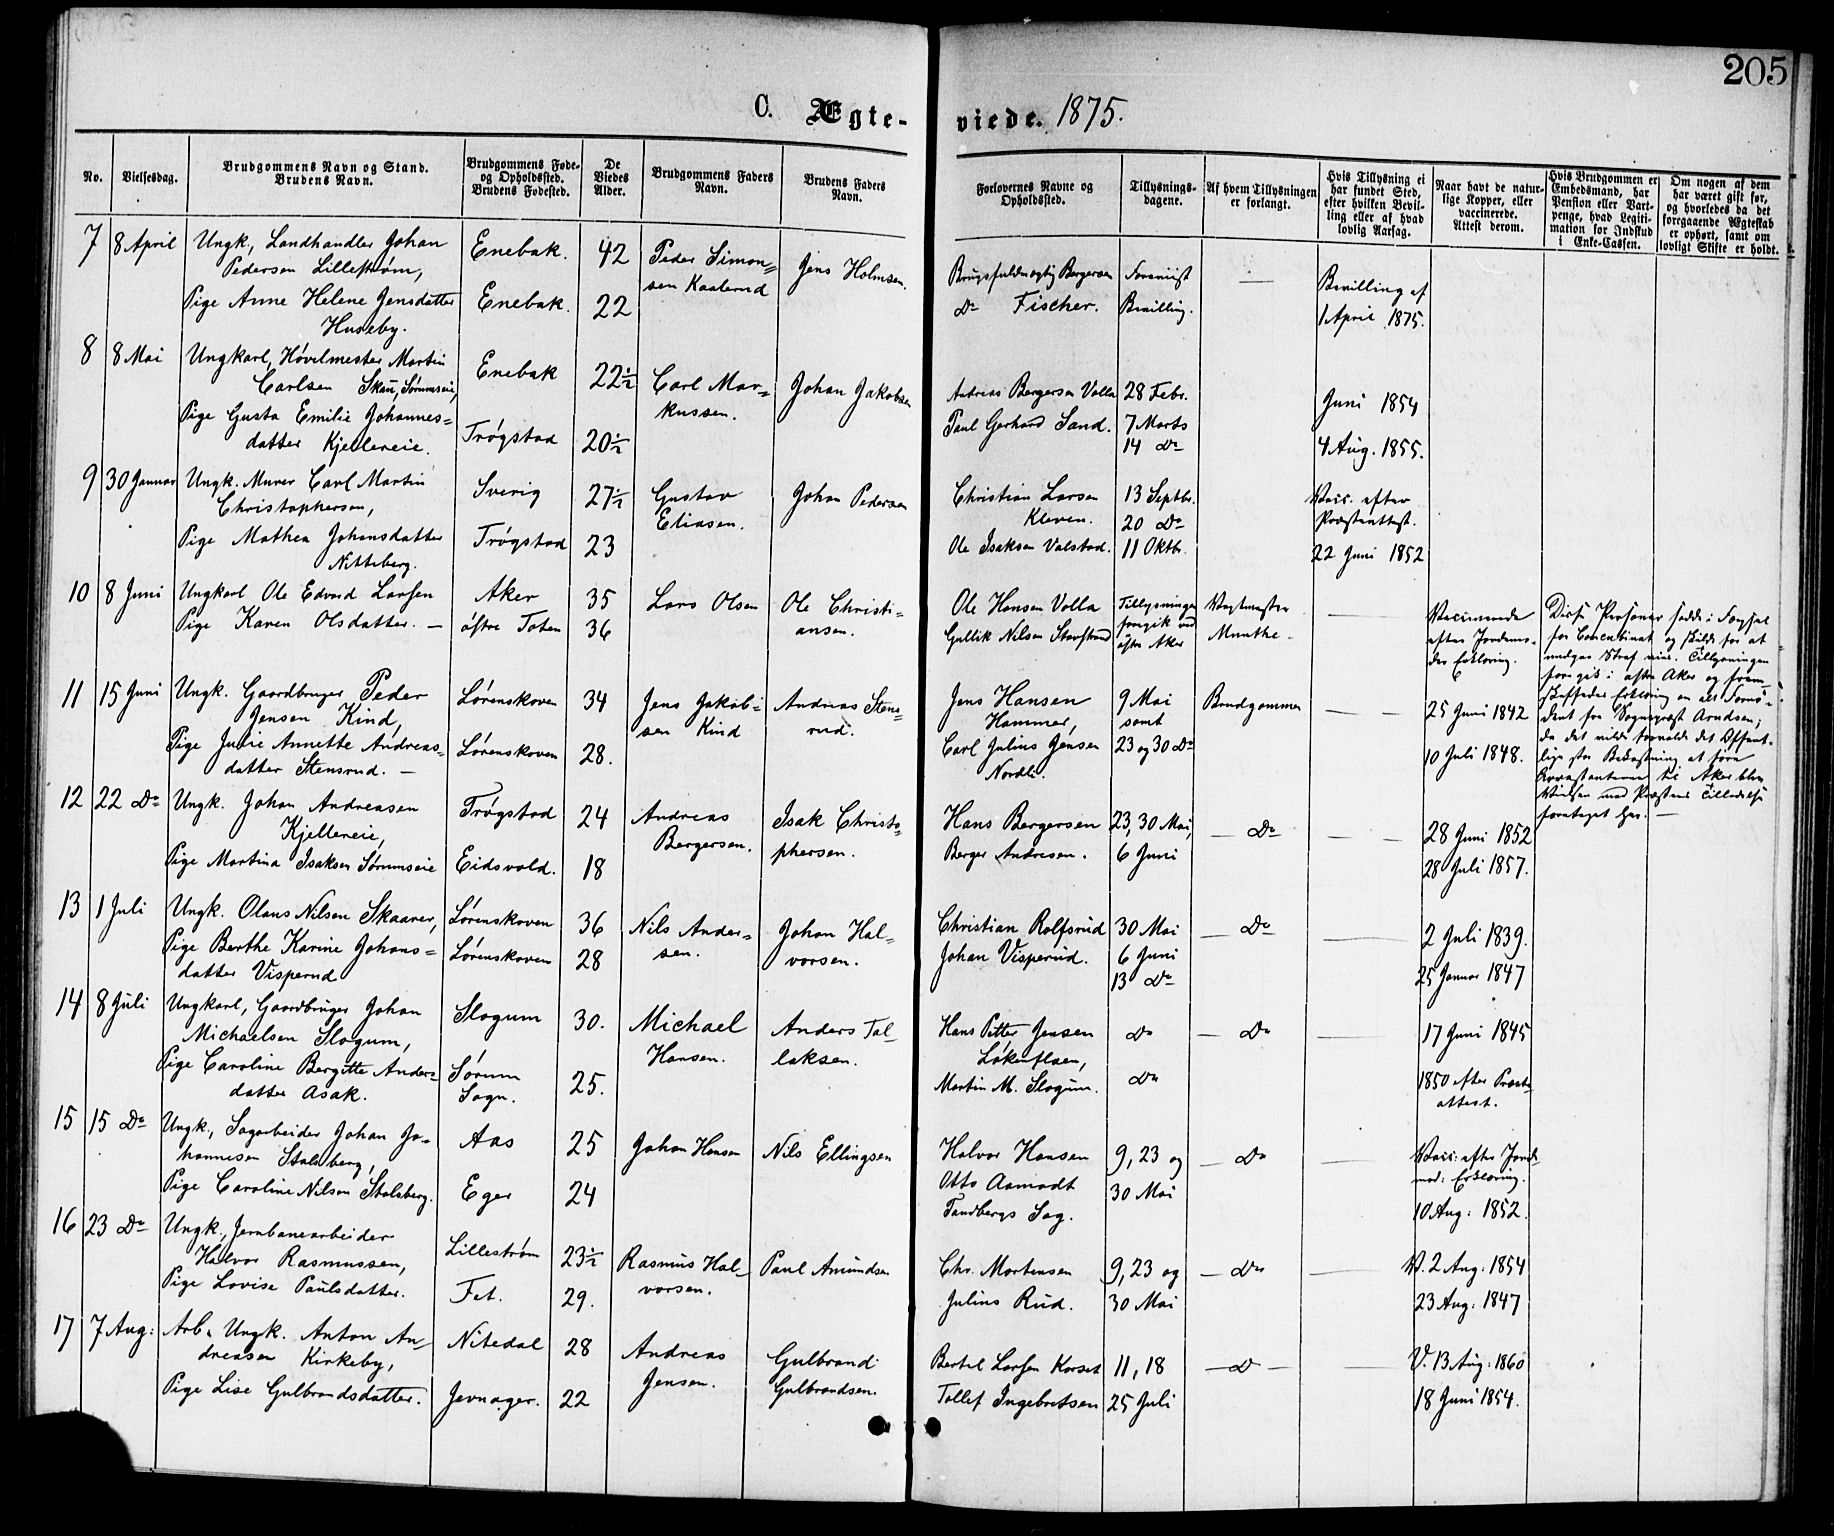 205
C. Ægte-
viede. 1875.
No.
Vielsesdag.
Brudgommens Navn og Stand.
Brudens Navn.
Brudgommens Føde-
og Opholdssted.
Brudens Fødested.
De
Viedes
Alder.
Brudgommens Faders
Navn.
Brudens Faders
Navn.
Forlovernes Navne og
Opholdssted.
Tillysnings-
dagene.
Af hvem Tillysningen
er forlangt.
Hvis Tillysning ei
har fundet Sted,
efter hvilken Bevil-
ling eller af hvad
lovlig Aarsag.
Naar havt de natur-
lige Kopper, eller
vaccinerede.
Attest derom.
Hvis Brudgommen er
Embedsmand, har
Pension eller Vart-
penge, hvad Legiti-
mation for Indskud
i Enke-Cassen.
Om nogen af dem
har været gift før,
og hvorledes da det
foregaaende Ægteskab
er ophørt, samt om
lovligt Skifte er holdt.
7 8 April Ungk, Landhandler Johan
Pedersen Lillestrøm,
Pige Anne Helene Jensdatter
Huseby.
Enebak. 42
Enebak. 22
Peder Simon=
sen Kaalerud
Jens Holmsen.
Brugsfuldmægtig Bergersen
Do Fischer.
Foreviist
Bevilling.
—
Bevilling af
1 April 1875.
8 8 Mai Ungkarl, Høvelmester Martin
Carlsen Skau, Sørumseie,
Pige Gusta Emilie Johannes=
datter Kjellereie.
Enebak 22½
Trøgstad 20½
Carl Mar=
kussen.
Johan Jakobsen
Andreas Bergersen Volla
Paul Gerhard Sand.
28 Febr.
7 Marts
14 Do
Juni 1854
4 Aug. 1855.
9 30 Januar Ungk. Murer Carl Martin
Christophersen,
Pige Mathea Johansdatter
Nitteberg.
Sverig 27½
Trøgstad 23
Gustav
Eliasen.
Johan Pedersen
Christian Larsen
Kleven.
Ole Isaksen Valstad.
13 Septbr.
20 Do
11 Oktbr.
Vacc. efter
Præsteattest.
22 Juni 1852
10 8 Juni Ungkarl Ole Edvard Larsen
Pige Karen Olsdatter. —
Aker 35
østre Toten 36
Lars Olsen
Ole Christi-
ansen.
Ole Hansen Volla
Gullik Nilsen
Tillysningen
foregik ved
østre Aker
Vagtmester
Munthe.
—
Vaccinerede
efter Jordemo-
der Erklæring.
Disse Personer sadde i Fængsel
for Concubinat og skulde for at
undgaa Straf vies. Tillysningen
foregik i østre Aker og frem-
skaffedes Erklæring
for Sognepræst Arndsen;
da det vilde forvolde det Offent-
lige stor Bekostning at føre
Arrestanterne til Aker blev
Vielsen med Præstens Tilladelse
foretaget her. —
11 15 Juni Ungk. Gaardbruger Peder
Jensen Kind,
Pige Julie Annette Andreas=
datter Stensrud. —
Lørenskoven 34
Lørenskoven 28.
Jens Jakob=
sen Kind
Andreas Stens=
rud.
Jens Hansen
Hammer,
Carl Julius Jensen
Nordli.
9 Mai
samt
23 og 30 Do
Brudgommen
— —
25 Juni 1842
10 Juli 1848.
12 22 Do Ungk. Johan Andreasen
Kjellereie,
Pige Martina Isaksen Sørumseie
Trøgstad 24
Eidsvold. 18
Andreas
Bergersen.
Isak Christo=
phersen.
Hans Bergersen
Berger Andresen.
23, 30 Mai,
6 Juni
— Do
— —
28 Juni 1852
28 Juli 1857.
13 1 Juli Ungk. Olaus Nilsen Skaarer,
Pige Berthe Karine Johans=
datter Visperud
Lørenskoven 36
Lørenskoven 28
Nils Ander=
sen.
Johan Hal=
vorsen.
Christian Rolfsrud
Johan Visperud.
30 Mai
6 Juni
13 Do
— Do
—
2 Juli 1839.
25 Januar 1847
14 8 Juli Ungkarl, Gaardbruger Johan
Michaelsen Slogum,
Pige Caroline Bergitte Anders=
datter Asak.
Slogum 30.
Sørum
Sogn. 25.
Michael
Hansen.
Anders Tol-
laksen.
Hans Petter Jensen
Martin M. Slogum.
Do
Do
— Do
—
17 Juni 1845
1850 efter Præste
attest.
15 15 Do Ungk, Sagarbeider Johan Jo=
hannesen Stalsberg,
Pige Caroline Nilsen Stalsberg.
Aas 25
Eger 24
Johan Hansen
Nils Ellingsen
Halvor Hansen
Otto Aamodt
Tandbergs Sag.
9, 23 og
30 Mai
— Do
—
Vacc: efter Jorde
mod: Erklæring.
10 Aug: 1852.
16 23 Do Ungk, Jernbanearbeider
Halvor Rasmussen,
Pige Lovise Paulsdatter.
Lillestrøm 23½
Fet. 29.
Rasmus Hal-
vorsen.
Paul Amundsen
Chr. Mortensen
Julius Rud.
9, 23 og
30 Mai
— Do
—
V. 2 Aug: 1854
23 Aug: 1847
17 7 Aug: Arb. Ungk. Anton An-
dreasen Kirkeby,
Pige Lise Gulbrandsdatter.
Nitedal 28
Jevnager. 22
Andreas
Jensen.
Gulbrand
Gulbrandsen.
Bertel Larsen Korset
Tollef Ingebretsen
11, 18
25 Juli
— D —
—
V. 13 Aug: 1860
18 Juni 1854.